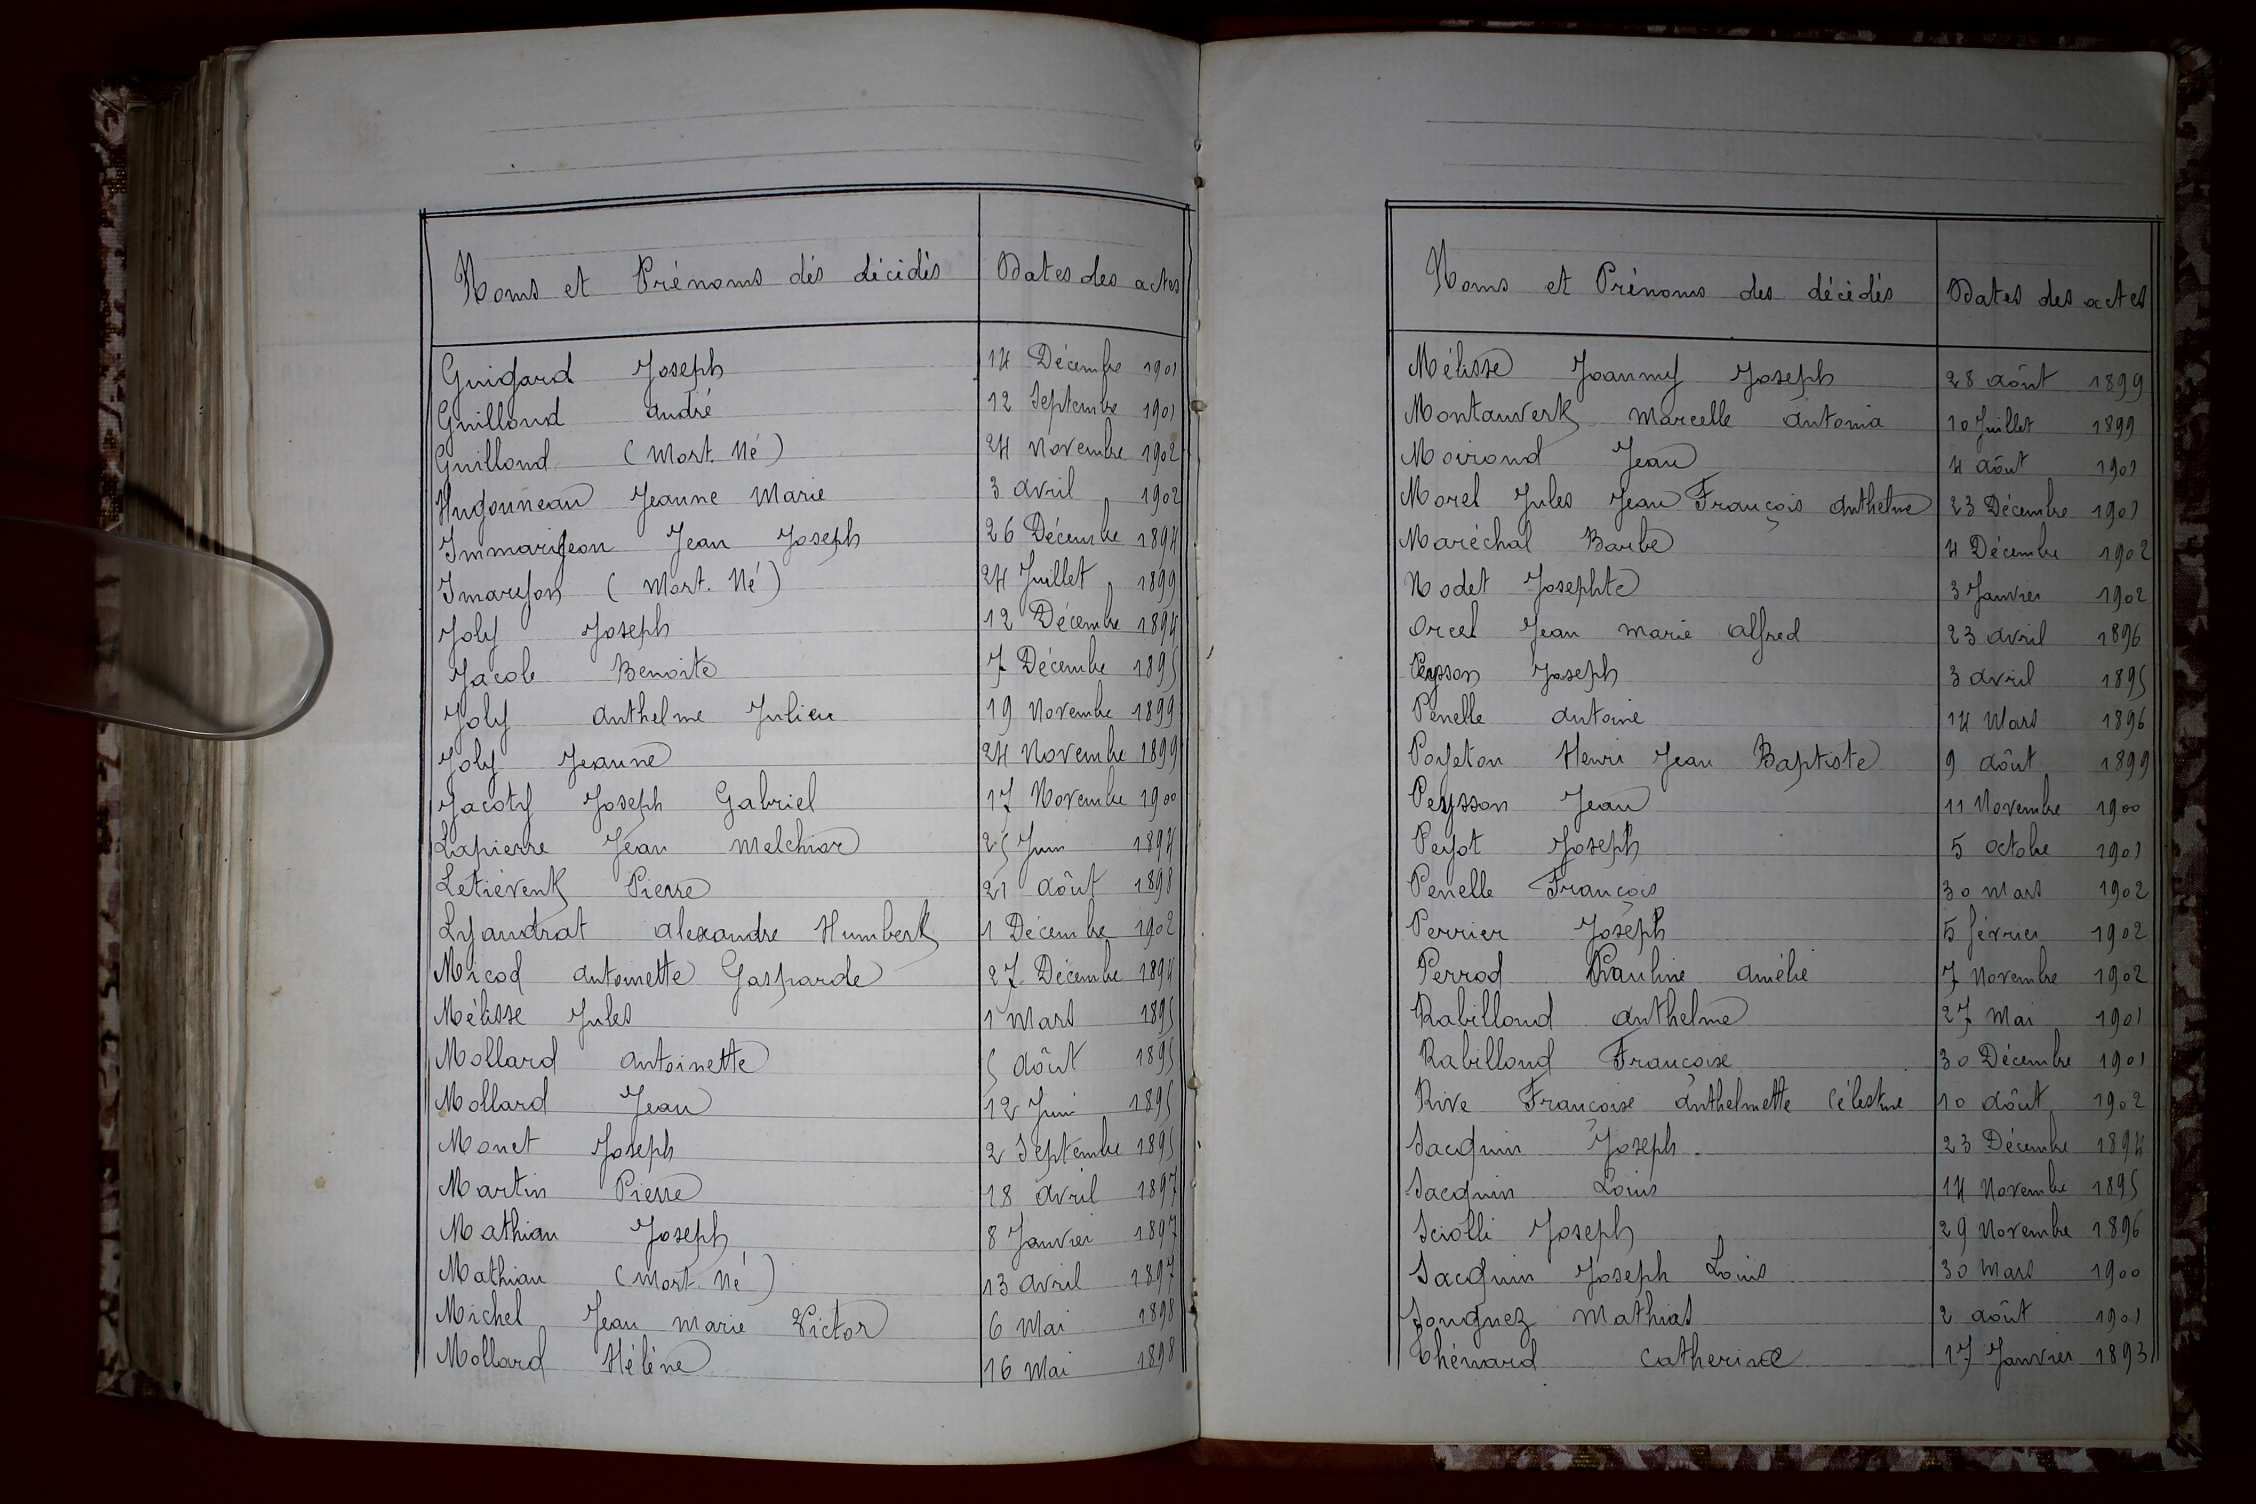 Noms et Prénoms dés décidés Dates des actes
Guigard Joseph 14 Décembre 1901
Guilloud André 12 Septembre 1901
Guilloud (Mort. Né) 24 Novembre 1902
Hugouneau Jeanne Marie 3 Avril 1902
Immarigeon Jean Joseph 26 Décembre 1894
(Mort. Né) 24 Juillet 1899
Joly Joseph 12 Décembre 1894
Jacob Benoite 7 Décembre 1895
Joly Anthelme Julien 19 Novembre 1899
Joly Jeanne 24 Novembre 1899
Jacoty Joseph Gabriel 17 Novembre 1900
Lapierre Jean Melchior 25 Juin 1894
Letiévent Pierre 21 Aôut 1898
Lyaudrat Alexandre Humbert 1 Décembre 1902
Micod Antoinette Gasparde 27 Décembre 1894
Mélisse Jules 1 Mars 1895
Mollard Antoinette 5 Aôut 1895
Mollard Jean 12 Juin 1895
Monet Joseph 2 Septembre 1895
Martin Pierre 18 Avril 1897
Mathian Joseph 8 Janvier 1897
Mathian (Mort. Né) 13 Avril 1897
Michel Jean Marie Victor 6 Mai 1898
Mollard Hélène 16 Mai 1898
Noms et Prénoms des décédés Dates des actes
Mélisse Joanny Joseph 28 Aôut 1899
Montauvert Marcelle Antonia 10 Juillet 1899
Moiroud Jean 4 Aôut 1901
Morel Jules Jean François Anthelme 23 Décembre 1901
Maréchal Barbe 4 Décembre 1902
Nodet Josephte 3 Janvier 1902
Orcel Jean Marie Alfred 23 Avril 1896
Peysson Joseph 3 Avril 1895
Penelle Antoine 14 Mars 1896
Poyeton Henri Jean Baptiste 9 Aôut 1899
Peysson Jean 11 Novembre 1900
Peyot Joseph 5 Octobre 1901
Penelle François 30 Mars 1902
Perrier Joseph 5 février 1902
Perrod Pauline Amélie 7 Novembre 1902
Rabilloud Anthelme 27 Mai 1901
Rabilloud Françoise 30 Décembre 1901
Rive Françoise Anthelmette Célestine 10 Aôut 1902
Sacquin Joseph. 23 Décembre 1894
Sacquin Louis 14 Novembre 1895
Sciolli Joseph 29 Novembre 1896
Sacquin Joseph Louis 30 Mars 1900
Songnez Mathias 2 Aôut 1901
Thénard Catherine 17 Janvier 1893